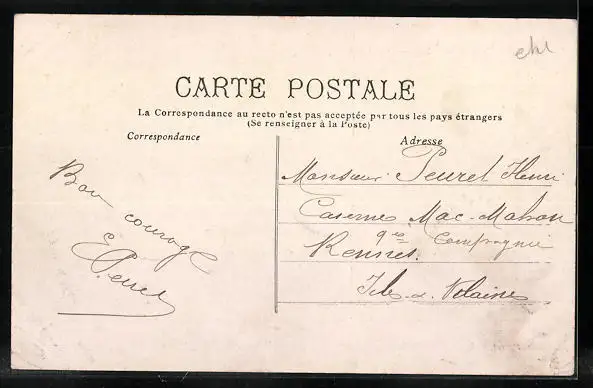 CARTE POSTALE
La Correspondance au recto n'est pas acceptée par tous les pays étrangers
(Se renseigner à la Poste)
Correspondance
Adresse
Bon courage
E. Peuret
Monsieur Peuret Henri
Casernes Mac-Mahon
9es Compagnie
Rennes.
Ille-&-Vilaines